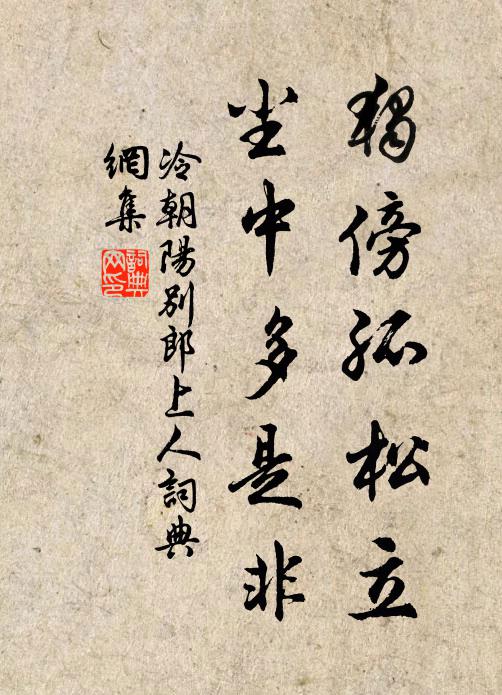 獨傍孤松立
尘中多是非
冷朝陽别郎上人詞典
網集
詞典
网印